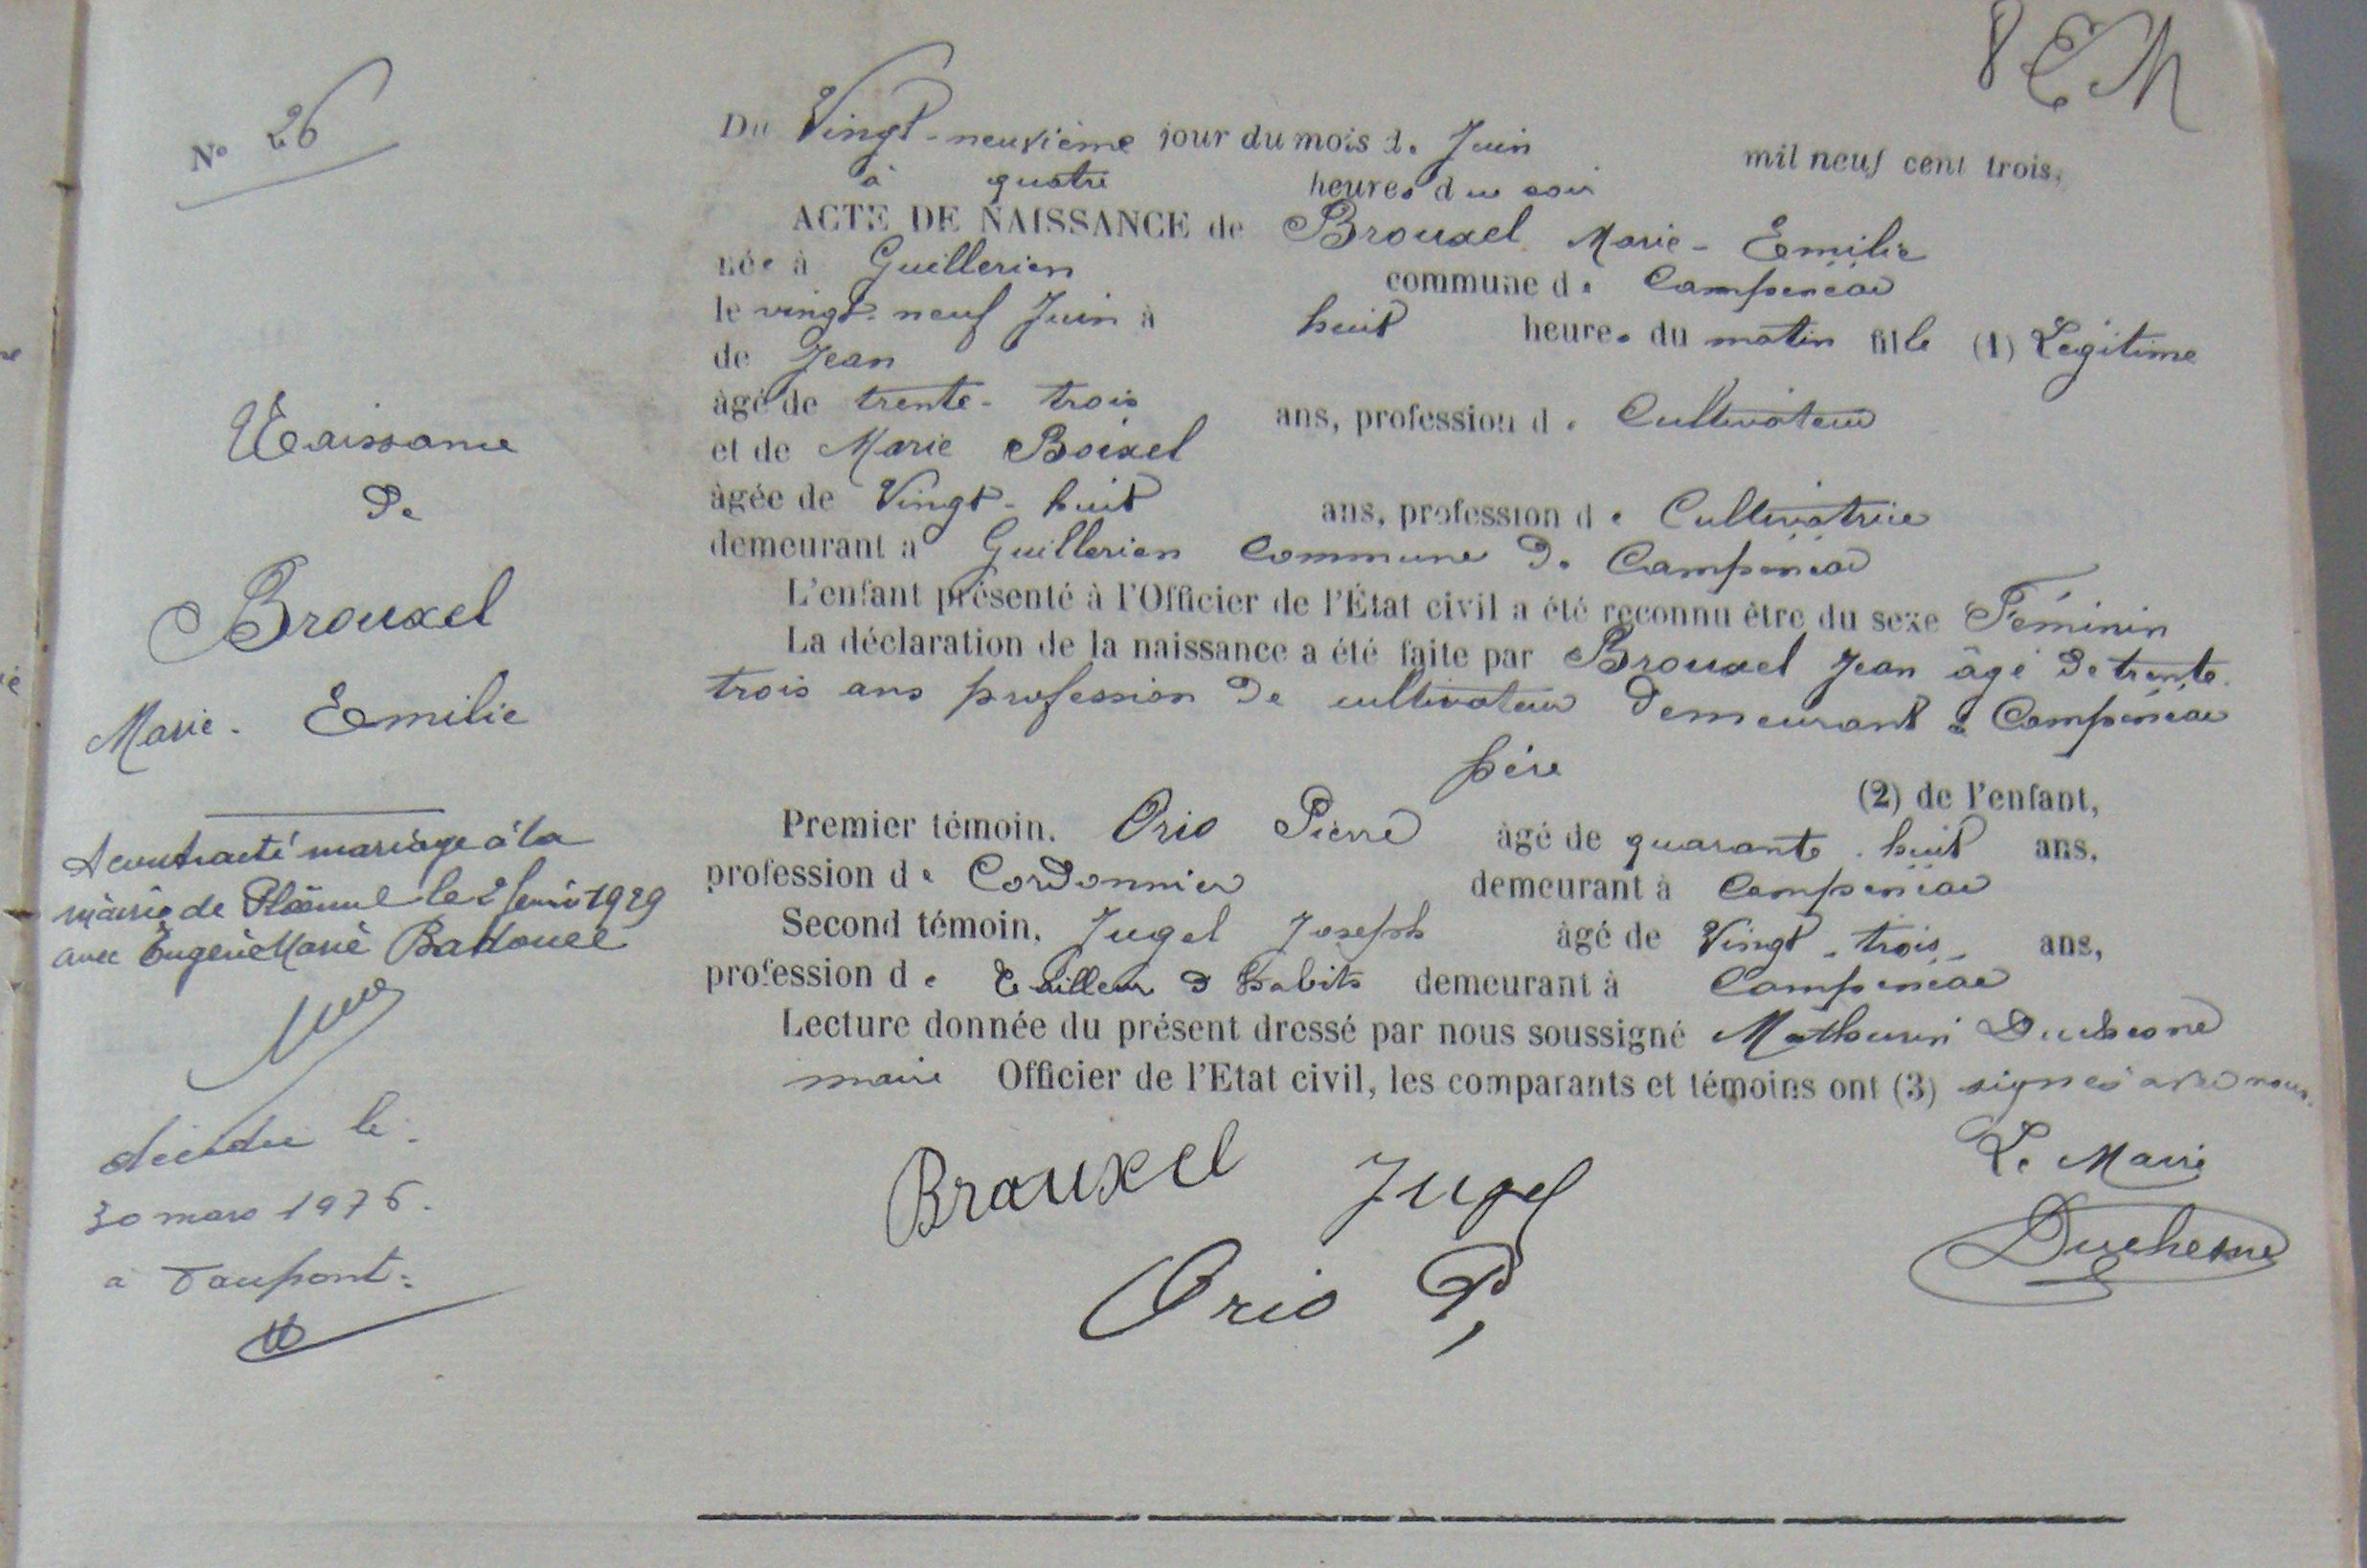 8 EM
N° 26
Du Vingt-neuvième jour du mois de Juin mil neuf cent trois,
à quatre heures du soir
ACTE DE NAISSANCE de Brouxel Marie-Emilie
née à Guillerien commune de Campénéac
le vingt-neuf Juin à huit heures du matin fille (1) Légitime
de Jean
âgé de trente-trois ans, profession de Cultivateur
et de Marie Boixel
âgée de Vingt-huit ans, profession de Cultivatrice
demeurant à Guillerien Commune de Campénéac
L'enfant présenté à l'Officier de l'État civil a été reconnu être du sexe Féminin
La déclaration de la naissance a été faite par Brouxel Jean âgé de trente-
trois ans profession de cultivateur demeurant à Campénéac
père (2) de l'enfant,
Premier témoin. Orio Pierre âgé de quarante-huit ans,
profession de Cordonnier demeurant à Campénéac
Second témoin, Jugel Joseph âgé de Vingt-trois ans,
profession de Tailleur d habits demeurant à Campénéac
Lecture donnée du présent dressé par nous soussigné Mathurin Duchesne
maire Officier de l'Etat civil, les comparants et témoins ont (3) signés avec nous.
Le Maire
Brouxel Jugel
Duchesne
Orio P,
Naissance
De
Brouxel
Marie-Emilie
A contracté mariage à la
mairie de Ploërmel le 2 1929
avec Eugène Marie Badouel
décédée le
30 mars 1976.
à Taupont.